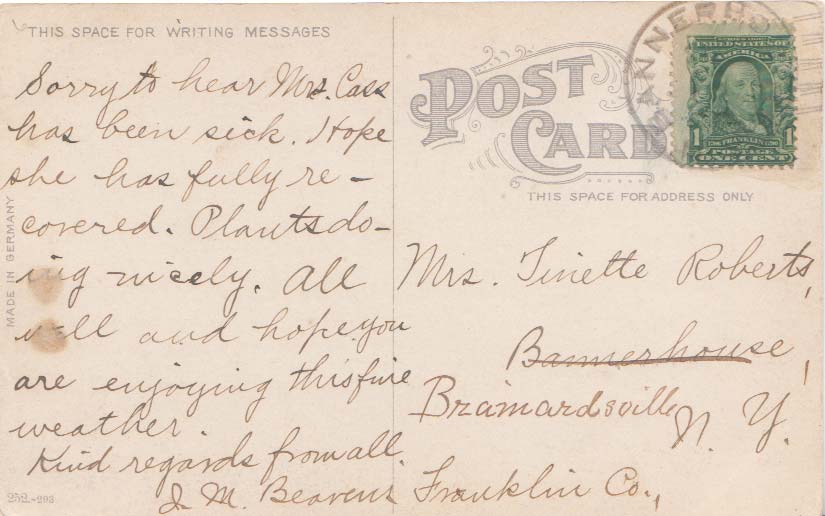 THIS SPACE FOR WRITING MESSAGES
Sorry to hear Mrs. Cass
has been sick. Hope
she has fully re-
covered. Plants do-
ing nicely. All
well and hope you
are enjoying this fine
weather.
Kind regards from all.
I. M. Beavens
MADE IN GERMANY
252-293
POST
CARD
THIS SPACE FOR ADDRESS ONLY
SERIES 1902
UNITED STATES OF
AMERICA
1 FRANKLIN 1
POSTAGE
ONE CENT
Mrs. Tinette Roberts,
Bannerhouse,
Brainardsville
N. Y.
Franklin Co.,